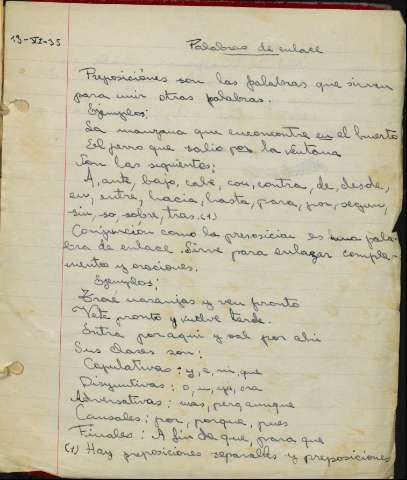 19-XI-35
Palabras de enlace
Preposiciónes son las palabras que sirven
para unir otras palabras.
Ejemplos:
La manzana que encontre en el huerto
El perro que salio por la ventana
Son las siguientes:
A, ante, bajo, cabe, con, contra, de, desde,
en, entre, hacia, hasta, para, por, segun,
sin, so, sobre, tras. (1)
Conjunción como la preposicion es una pala-
bra de enlace. Sirve para enlazar comple-
mentos y oraciones.
Ejemplos:
Trae naranjas y ven pronto
Vete pronto y vuelve tarde.
Entra por aqui y sal por ahi
Sus clases son:
Copulativas: y, e, ni, que
Disyuntivas: o, u, ya, ora
Adversativas: mas, pero, aunque
Causales: por, porque, pues
Finales: A fin de que, para que
(1) Hay preposiciones separables y preposiciones